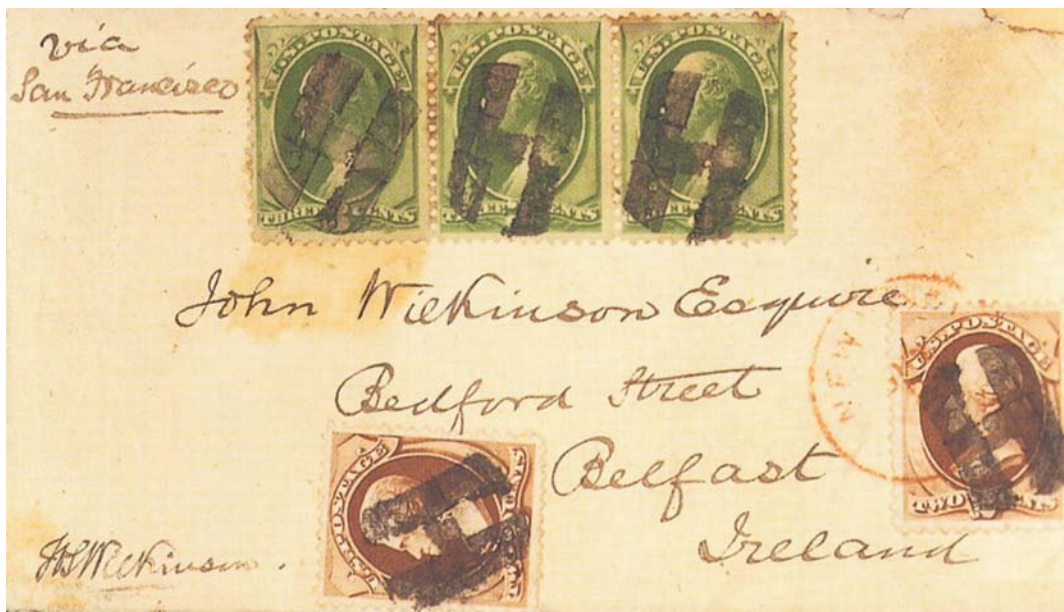 via
San Francisco
U.S. POSTAGE
THREE CENTS
U.S. POSTAGE
THREE CENTS
U.S. POSTAGE
THREE CENTS
John Wilkinson Esquire
Bedford Street
Belfast
Ireland
NEW
U.S. POSTAGE
TWO CENTS
U.S. POSTAGE
CENTS
Wilkinson.